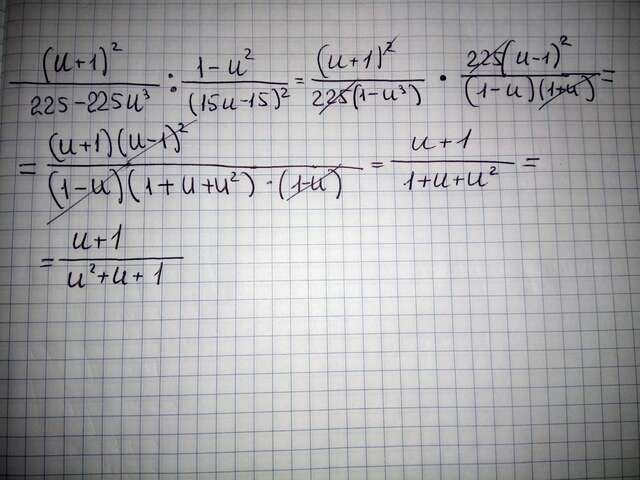 (u+1)² / 225-225u³ : 1-u² / (15u-15)² = (u+1)² / 225(1-u³) · 225(u-1)² / (1-u)(1+u) =
= (u+1)(u-1)² / (1-u)(1+u+u²)·(1-u) = u+1 / 1+u+u² =
= u+1 / u²+u+1